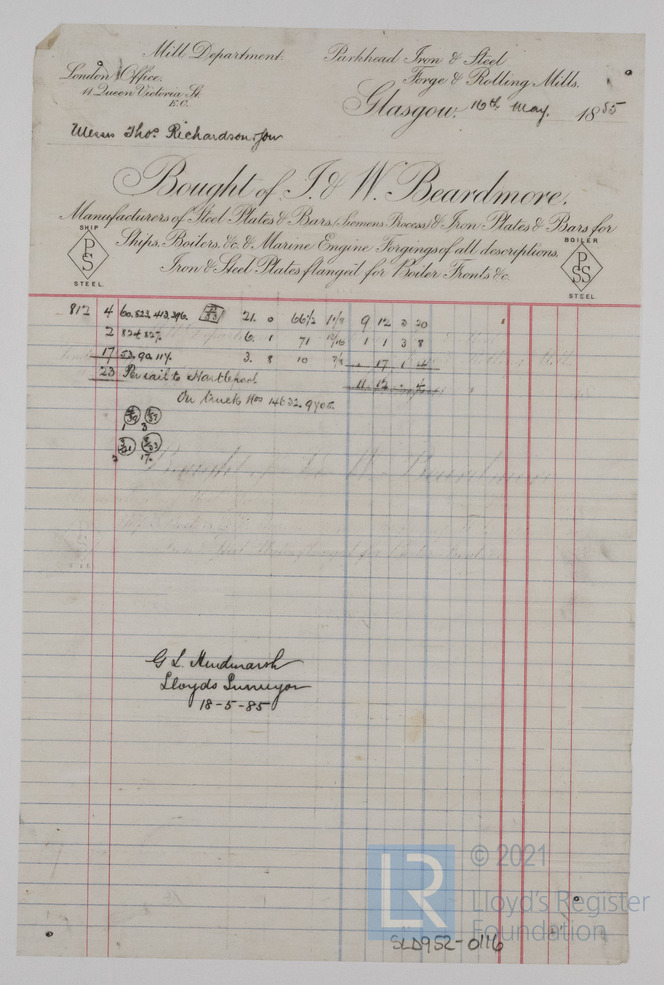 Mill Department.
Parkhead Iron & Steel
London Office.
Forge & Rolling Mills.
11 Queen Victoria St
E.C.
Glasgow. 16th May. 1885
Messrs Thos. Richardson & Son
Bought of I. & W. Beardmore,
Manufacturers of Steel Plates & Bars, (Siemens Process) & Iron Plates & Bars for
SHIP
Ships, Boilers, &c. & Marine Engine Forgings of all descriptions,
BOILER
P S
Iron & Steel Plates flanged for Boiler Fronts &c.
P SS
STEEL.
STEEL.
812 4 60. 823. 413. 396. 21. 0 66½ 9 12 20
2 824 827. 6. 1 71 1 1 3 8
17 53. 90. 114. 3. 8 10 17 1
23 Per rail to Hartlepool
On truck Nos 14632. 9408.
1 3
2 17.
G L Hindmarsh
Lloyds Surveyor
18-5-85
LR
© 2021
Lloyd's Register
Foundation
SLD952-0116